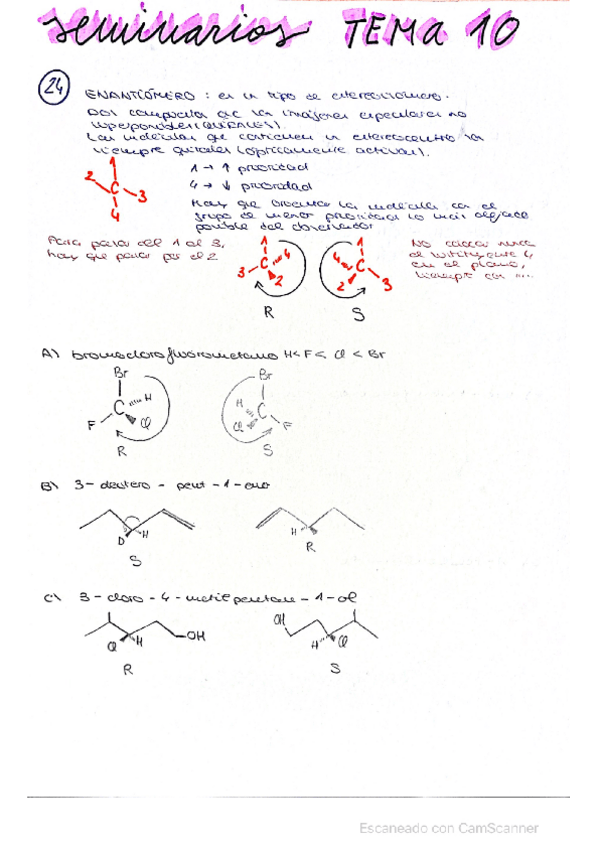 Seminarios TEMA 10
24
ENANTIÓMERO: es un tipo de estereoisómero.
Dos compuestos que son imágenes especulares no
superponibles (QUIRALES).
Las moléculas que contienen un estereocentro son
siempre quirales (ópticamente activas).
1 → ↑ prioridad
4 → ↓ prioridad
1
2
C
3
4
Hay que orientar la molécula con el
grupo de menor prioridad lo más alejado
posible del observador
Para pasar del 1 al 3,
hay que pasar por el 2
1
C
4
3
2
R
1
4
C
2
3
S
No colocar nunca
el sustituyente 4
en el plano,
siempre con
A) bromoclorofluorometano H<F< Cl < Br
Br
C
H
F
Cl
R
Br
H
C
Cl
F
S
B) 3-deutero-pent-1-eno
D
H
S
H
R
C) 3-cloro-4-metilpentan-1-ol
Cl
H
OH
R
OH
H
Cl
S
Escaneado con CamScanner